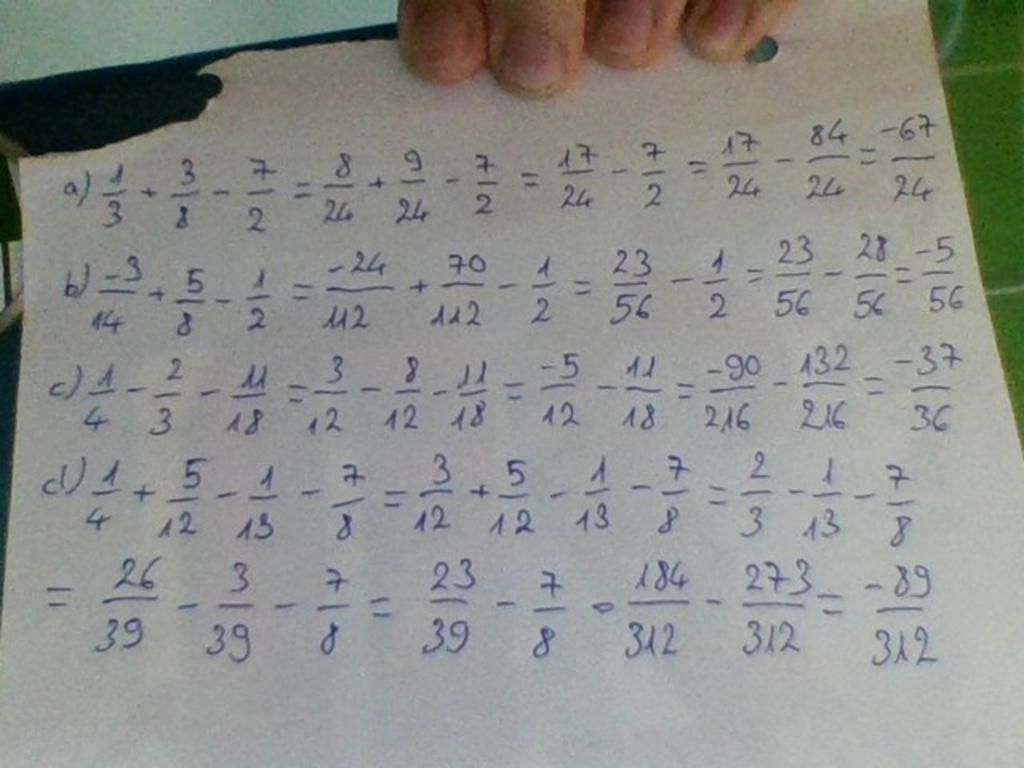 a) 1/3 + 3/8 - 7/2 = 8/24 + 9/24 - 7/2 = 17/24 - 7/2 = 17/24 - 84/24 = -67/24
b) -3/14 + 5/8 - 1/2 = -24/112 + 70/112 - 1/2 = 23/56 - 1/2 = 23/56 - 28/56 = -5/56
c) 1/4 - 2/3 - 11/18 = 3/12 - 8/12 - 11/18 = -5/12 - 11/18 = -90/216 - 132/216 = -37/36
d) 1/4 + 5/12 - 1/13 - 7/8 = 3/12 + 5/12 - 1/13 - 7/8 = 2/3 - 1/13 - 7/8
= 26/39 - 3/39 - 7/8 = 23/39 - 7/8 = 184/312 - 273/312 = -89/312